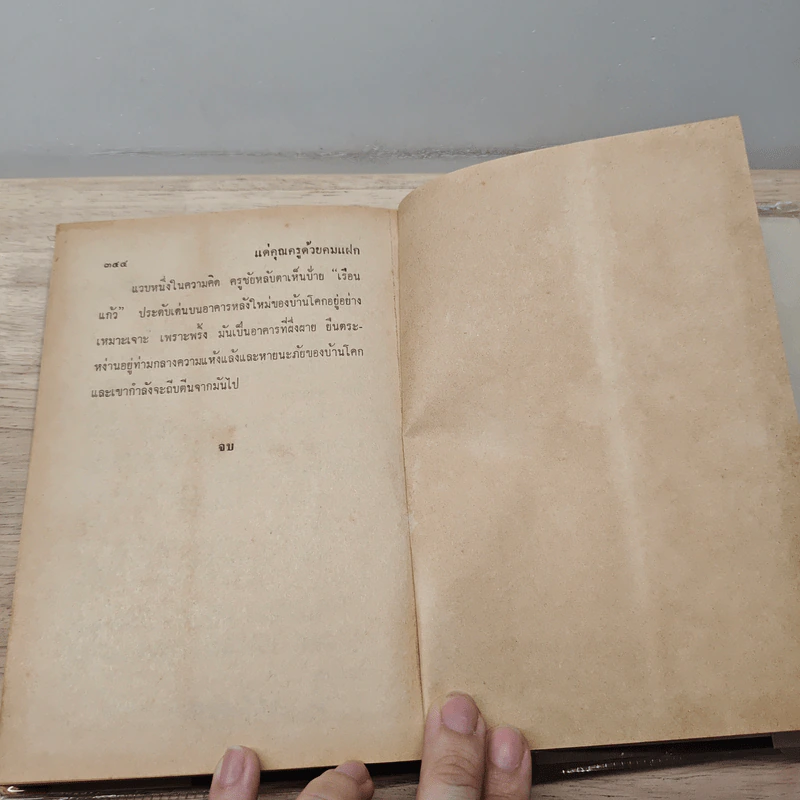 ๓๔๔ แด่คุณครูด้วยคมแฝก
แวบหนึ่งในความคิด ครูชัยหลับตาเห็นป้าย “เรือน
แก้ว” ประดับเด่นบนอาคารหลังใหม่ของบ้านโคกอยู่อย่าง
เหมาะเจาะ เพราะพริ้ง มันเป็นอาคารที่ผึ่งผาย ยืนตระ-
หง่านอยู่ท่ามกลางความแห้งแล้งและหายนะภัยของบ้านโคก
และเขากำลังจะถีบตีนจากมันไป
จบ